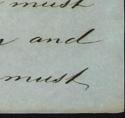 must
and
must